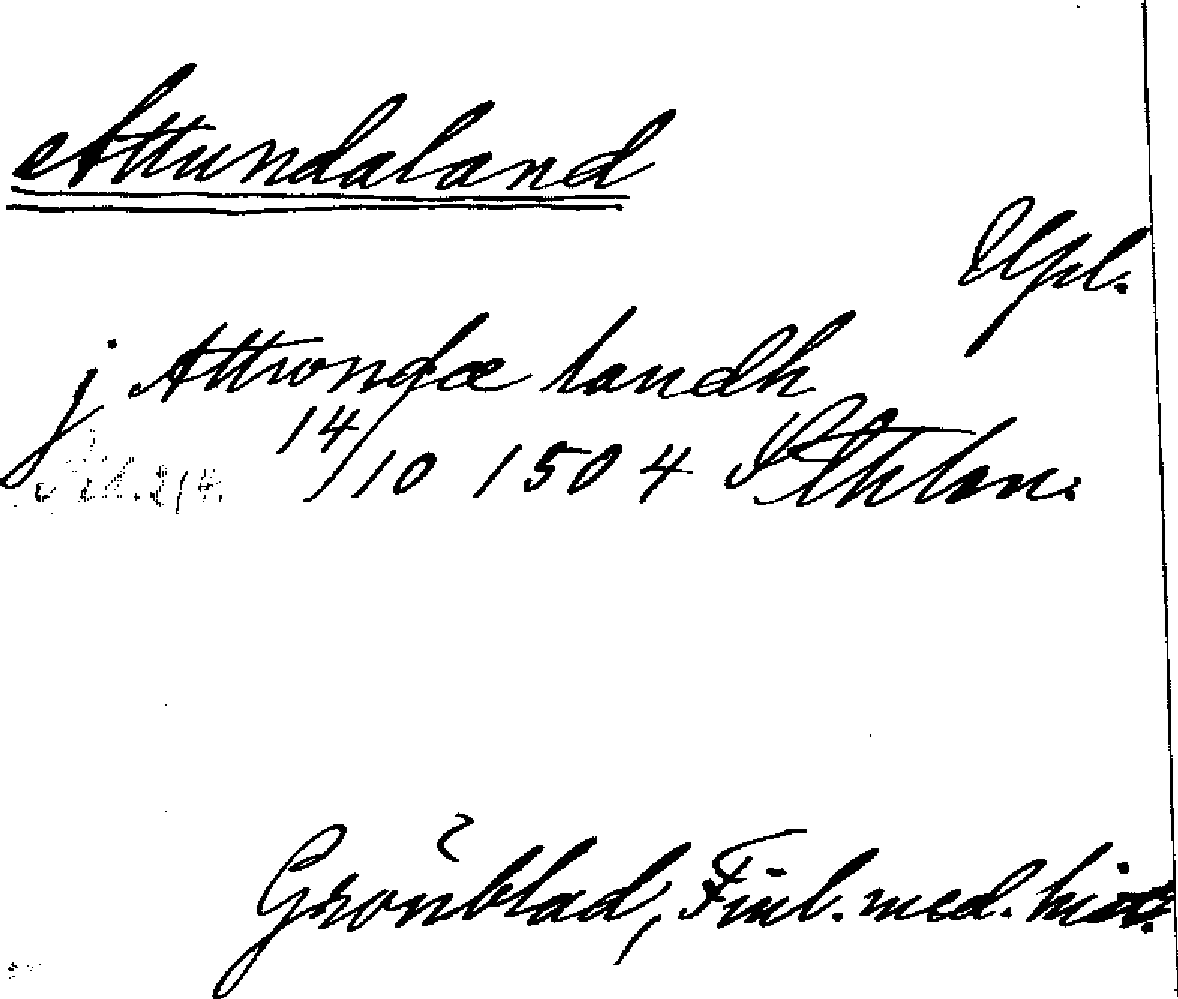 Attundaland
Upl.
j Attwondæ landh
14/10 1504 Sthlm.
Grönblad, Finl. med. hist.